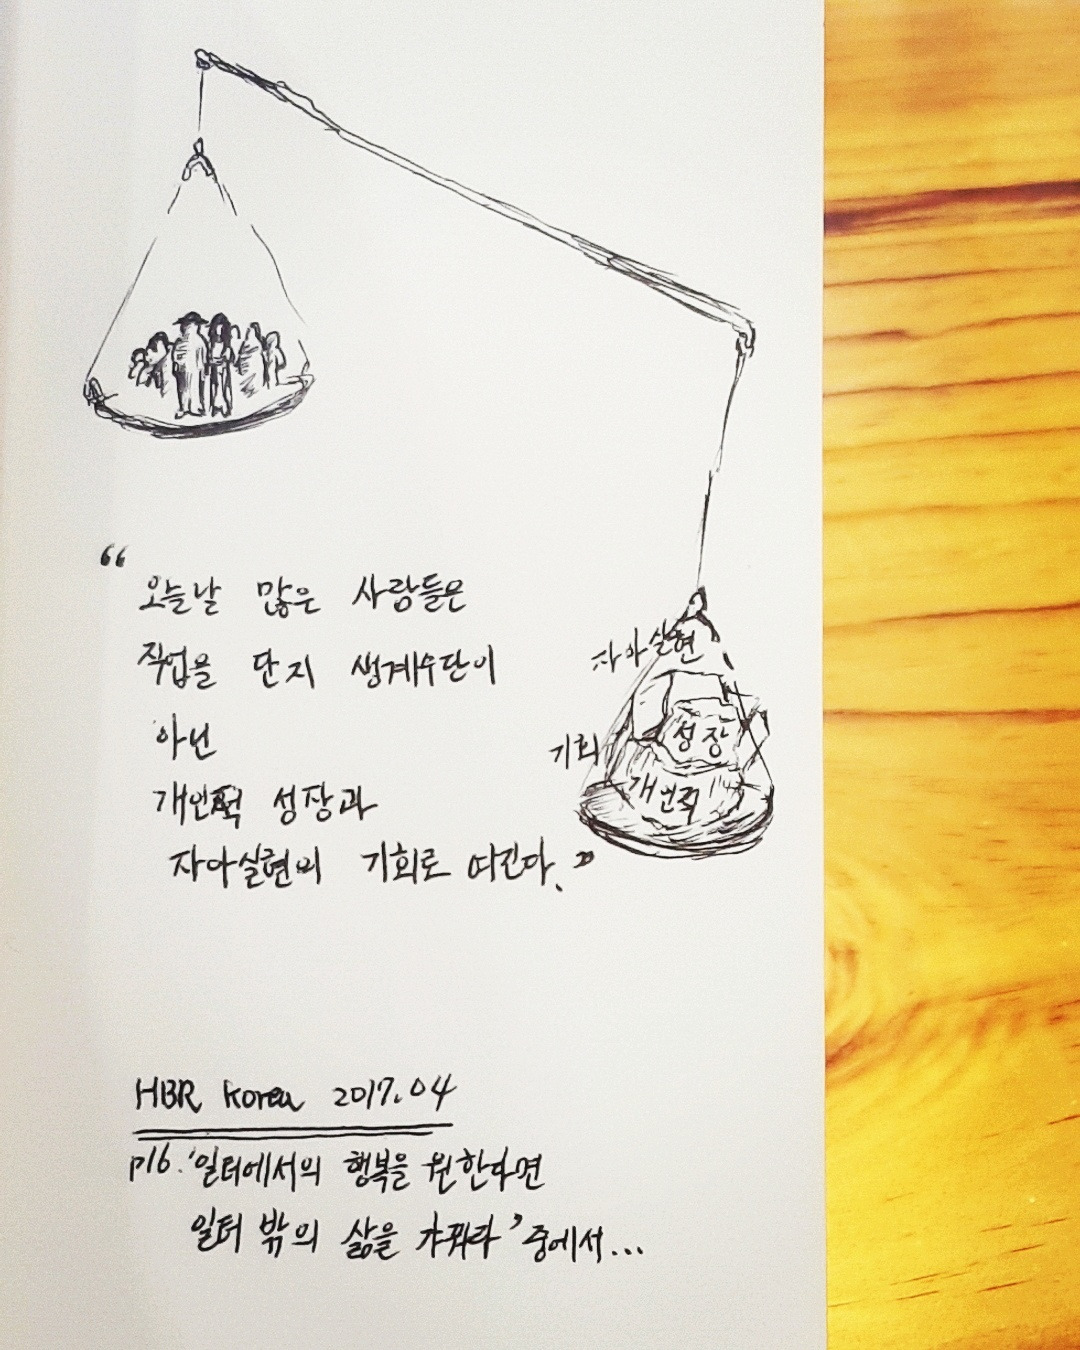 “오늘날 많은 사람들은
직업을 단지 생계수단이
아닌
개인적 성장과
자아실현의 기회로 여긴다.”
자아실현
기회
성장
개인적
HBR Korea 2017.04
p16. '일터에서의 행복을 원한다면
일터 밖의 삶을 가꿔라' 중에서...